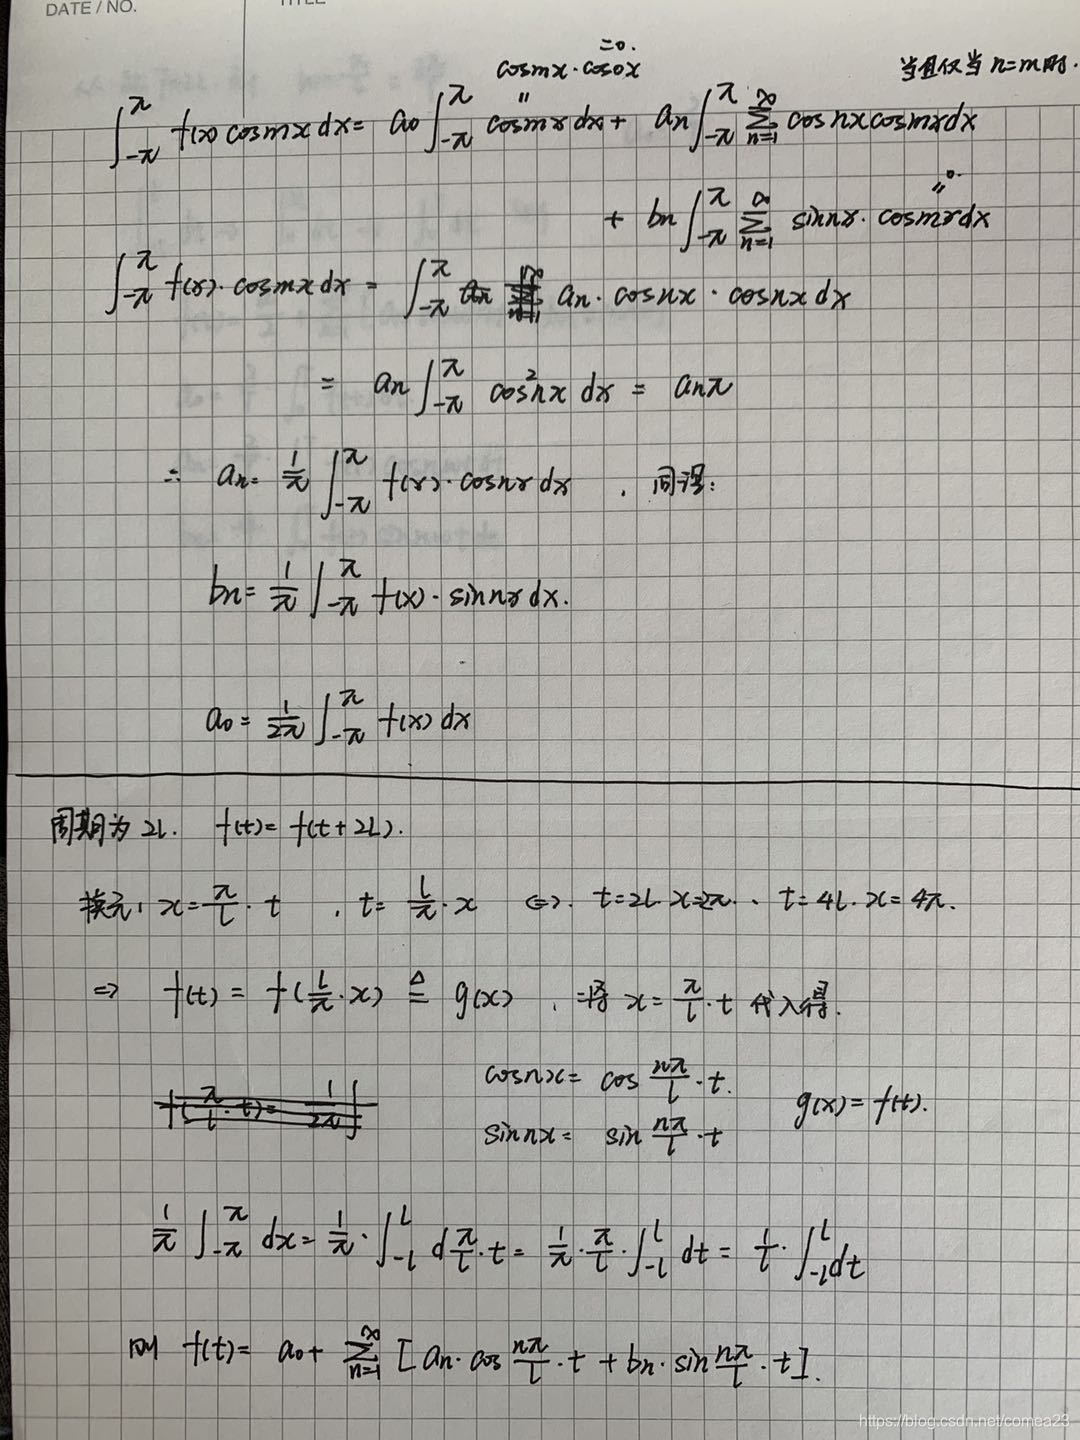 DATE / NO.
TITLE
=0.
cosmx·cos0x
当且仅当 n=m时.
∫_{-π}^{π} f(x) cosmx dx = a0 ∫_{-π}^{π} cosmx dx + an ∫_{-π}^{π} Σ_{n=1}^{∞} cosnx cosmx dx
"0.
+ bn ∫_{-π}^{π} Σ_{n=1}^{∞} sinnx · cosmx dx
∫_{-π}^{π} f(x)·cosmx dx = ∫_{-π}^{π} an · cosnx · cosnx dx
= an ∫_{-π}^{π} cos²nx dx = anπ
∴ an = 1/π ∫_{-π}^{π} f(x)·cosnx dx . 同理:
bn = 1/π ∫_{-π}^{π} f(x)·sinnx dx.
a0 = 1/2π ∫_{-π}^{π} f(x) dx
周期为 2L. f(t) = f(t+2L).
换元: x = π/L · t , t = L/π · x ⇔ t=2L x=2π. t=4L. x=4π.
⇒ f(t) = f(L/π·x) ≜ g(x) . 将 x = π/L · t 代入得.
cosnx = cos nπ/L · t.
g(x) = f(t).
sinnx = sin nπ/L · t
1/π ∫_{-π}^{π} dx = 1/π · ∫_{-L}^{L} d π/L · t = 1/π · π/L · ∫_{-L}^{L} dt = 1/L · ∫_{-L}^{L} dt
则 f(t) = a0 + Σ_{n=1}^{∞} [an · cos nπ/L · t + bn · sin nπ/L · t].
https://blog.csdn.net/comea23